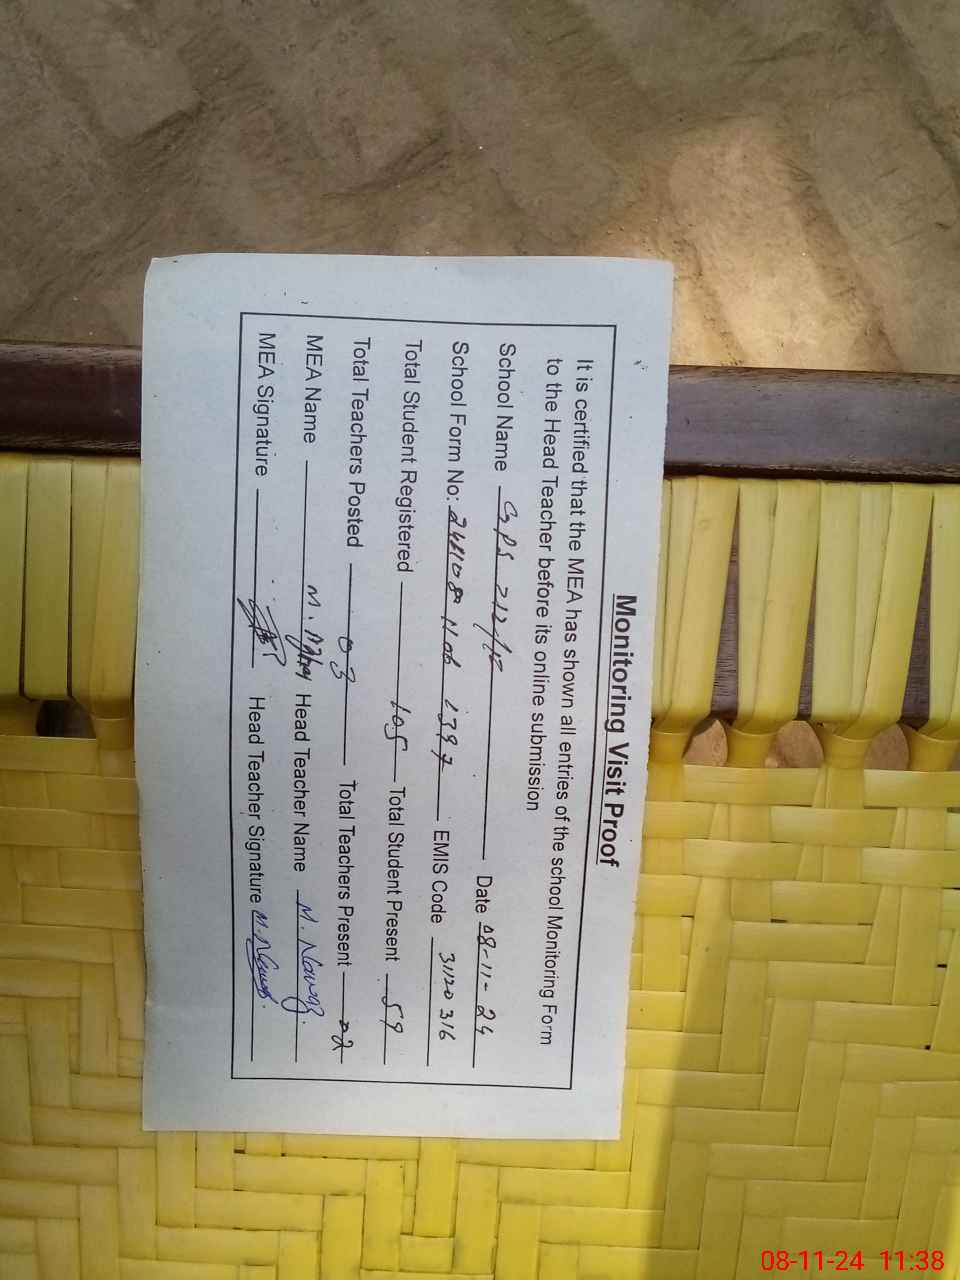 Monitoring Visit Proof
It is certified that the MEA has shown all entries of the school Monitoring Form
to the Head Teacher before its online submission
School Name GPS 212/ Date 08-11-24
School Form No: EMIS Code 31120316
Total Student Registered 105 Total Student Present 59
Total Teachers Posted 03 Total Teachers Present 02
MEA Name M. Head Teacher Name M. Nawaz.
MEA Signature Head Teacher Signature M. Nawaz.
08-11-24 11:38